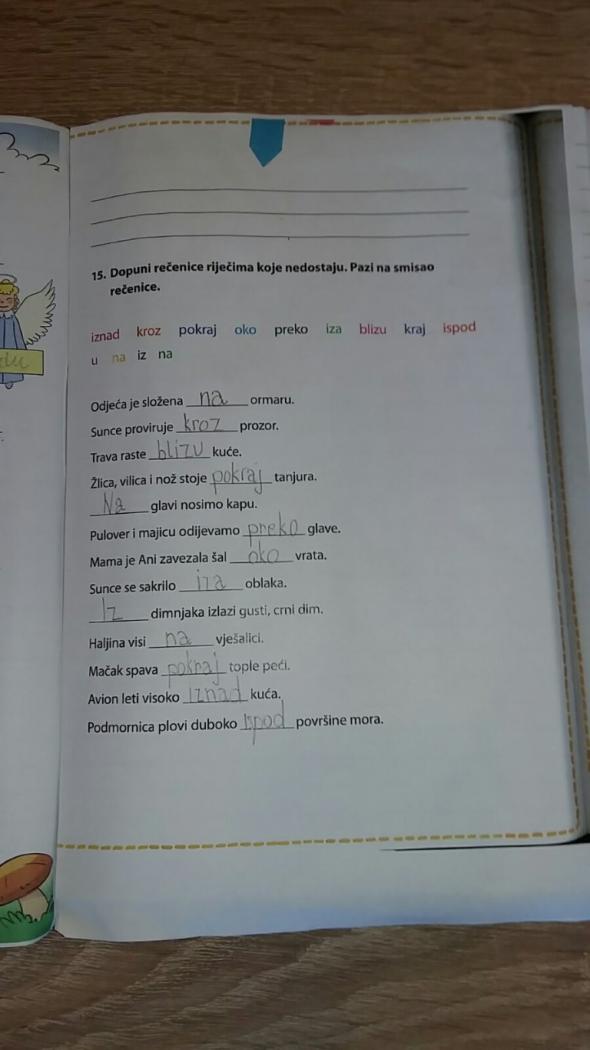 15. Dopuni rečenice riječima koje nedostaju. Pazi na smisao
rečenice.
iznad kroz pokraj oko preko iza blizu kraj ispod
u na iz na
Odjeća je složena na ormaru.
Sunce proviruje kroz prozor.
Trava raste blizu kuće.
Žlica, vilica i nož stoje pokraj tanjura.
Na glavi nosimo kapu.
Pulover i majicu odijevamo preko glave.
Mama je Ani zavezala šal oko vrata.
Sunce se sakrilo iza oblaka.
Iz dimnjaka izlazi gusti, crni dim.
Haljina visi na vješalici.
Mačak spava pokraj tople peći.
Avion leti visoko Iznad kuća.
Podmornica plovi duboko Ispod površine mora.